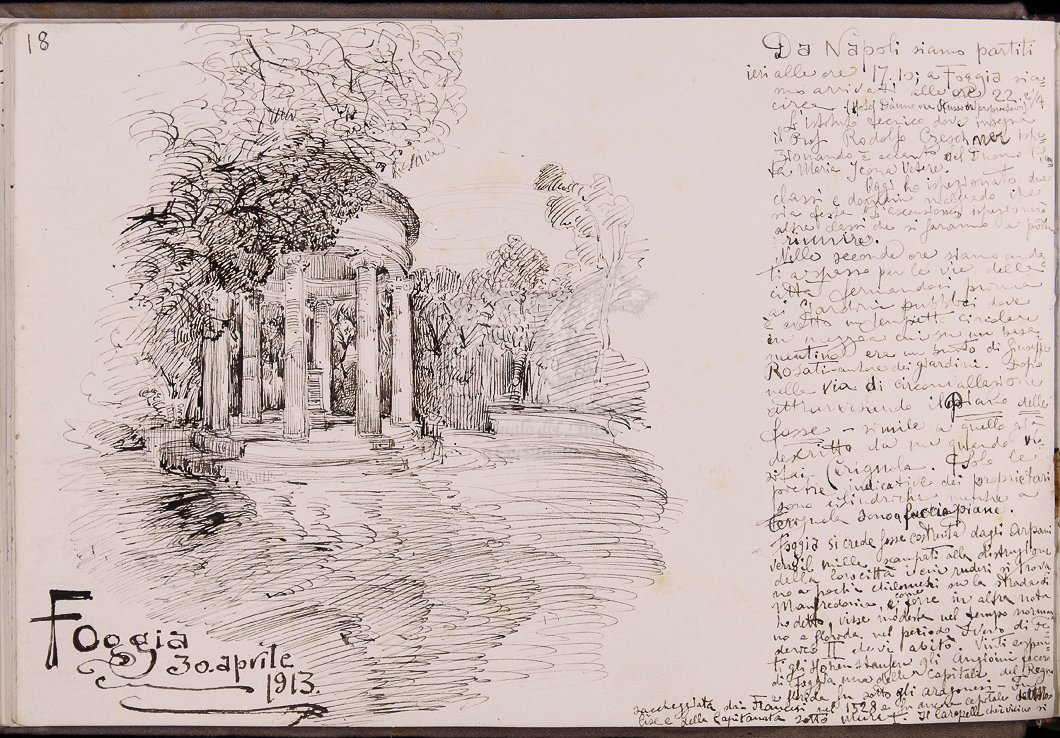 18
Da Napoli siamo partiti
ieri alle ore 17.10; a Foggia sia-
mo arrivati alle ore 22 e 3/4
circa.
L'istituto tecnico dove insegna
il Prof. Rodolfo
è accanto del Duomo
ta Maria Icona Vetere.
Oggi ho ispezionato due
classi e domani malgrado che
sia festa (l'ascensione) ispezionerò
altre classi che si faranno a posta
riunire.
Nelle seconde ore siamo anda-
ti a spasso per le vie della
città fermandoci prima
ai Giardini pubblici dove
è eretto un tempietto circolare
in mezzo a cui su un base-
mentino era un busto di Giuseppe
Rosati autore dei giardini. Dopo
nella via di circonvallazione
attraversando il Piano delle
fosse - simile a quello già
descritto da me quando vi-
sitai Cerignola. Solo le
indicative dei proprietari
sono cilindriche mentre a
Cerignola sono a faccia piane.
Foggia si crede fosse costruita dagli Arpani
verso il mille scampati alla distruzione
della loro città i cui ruderi si trova-
no a pochi chilometri su la strada di
Manfredonia, e come in altre note
ho detto visse modesta nel tempo norman-
no e florida nel periodo Svevo di Fe-
derico II che vi abitò. Vinti
gli Hohenstaufen gli Angioini fecero
di Foggia una delle Capitali del Regno
e florida fu sotto gli aragonesi - Fu
saccheggiata dai Francesi nel 1528 e fu ancora capitale
e della Capitanata sotto Murat. Il Carapelle che vicino si
Foggia
30. aprile
1913.